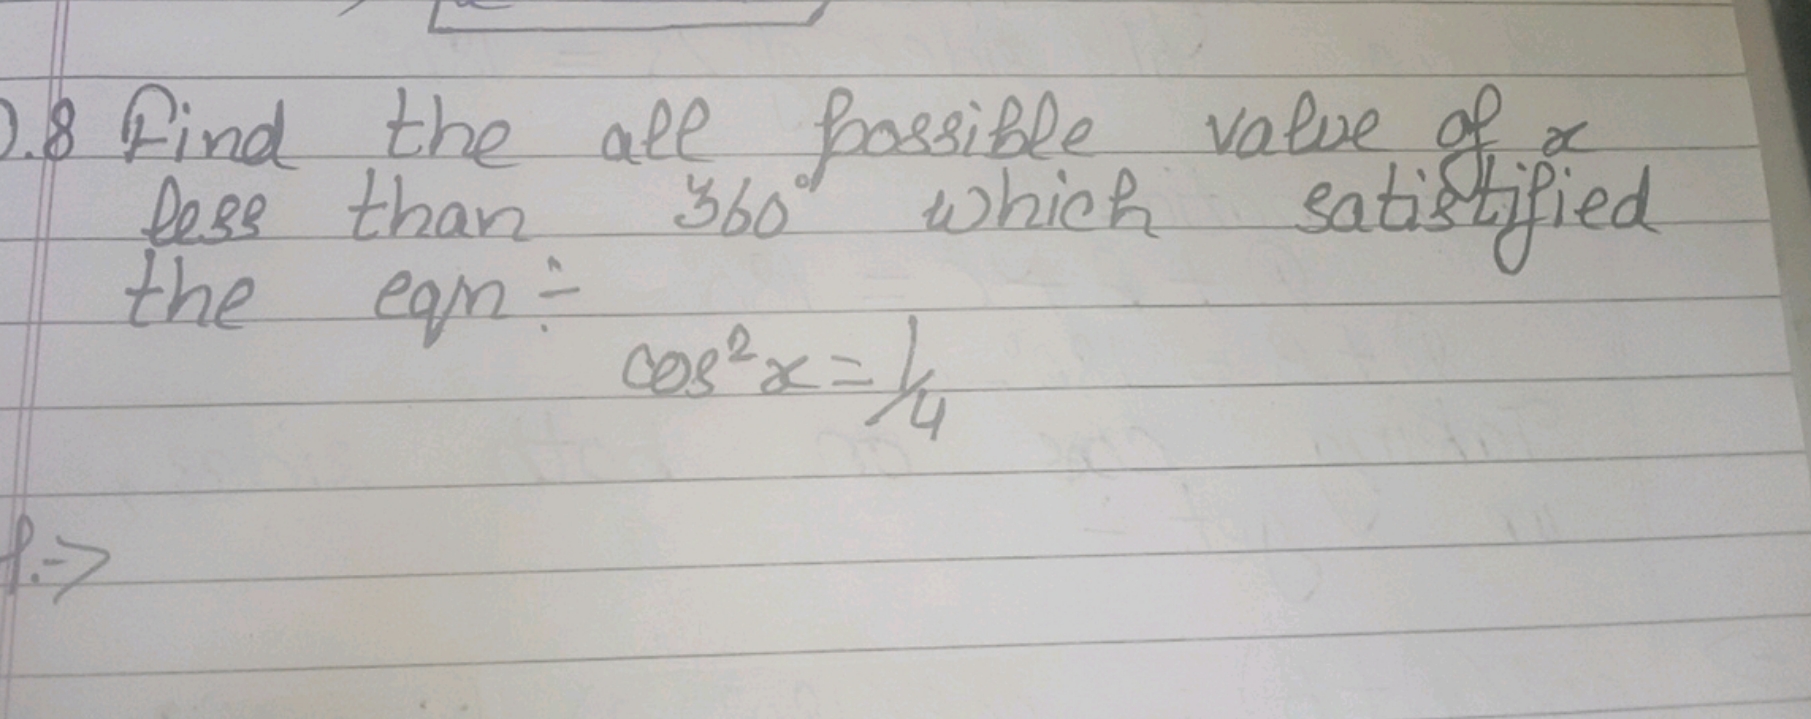 Q.8 Find the all possible value of x
less than 360° which satistified
the eqn ÷
cos²x = 1/4